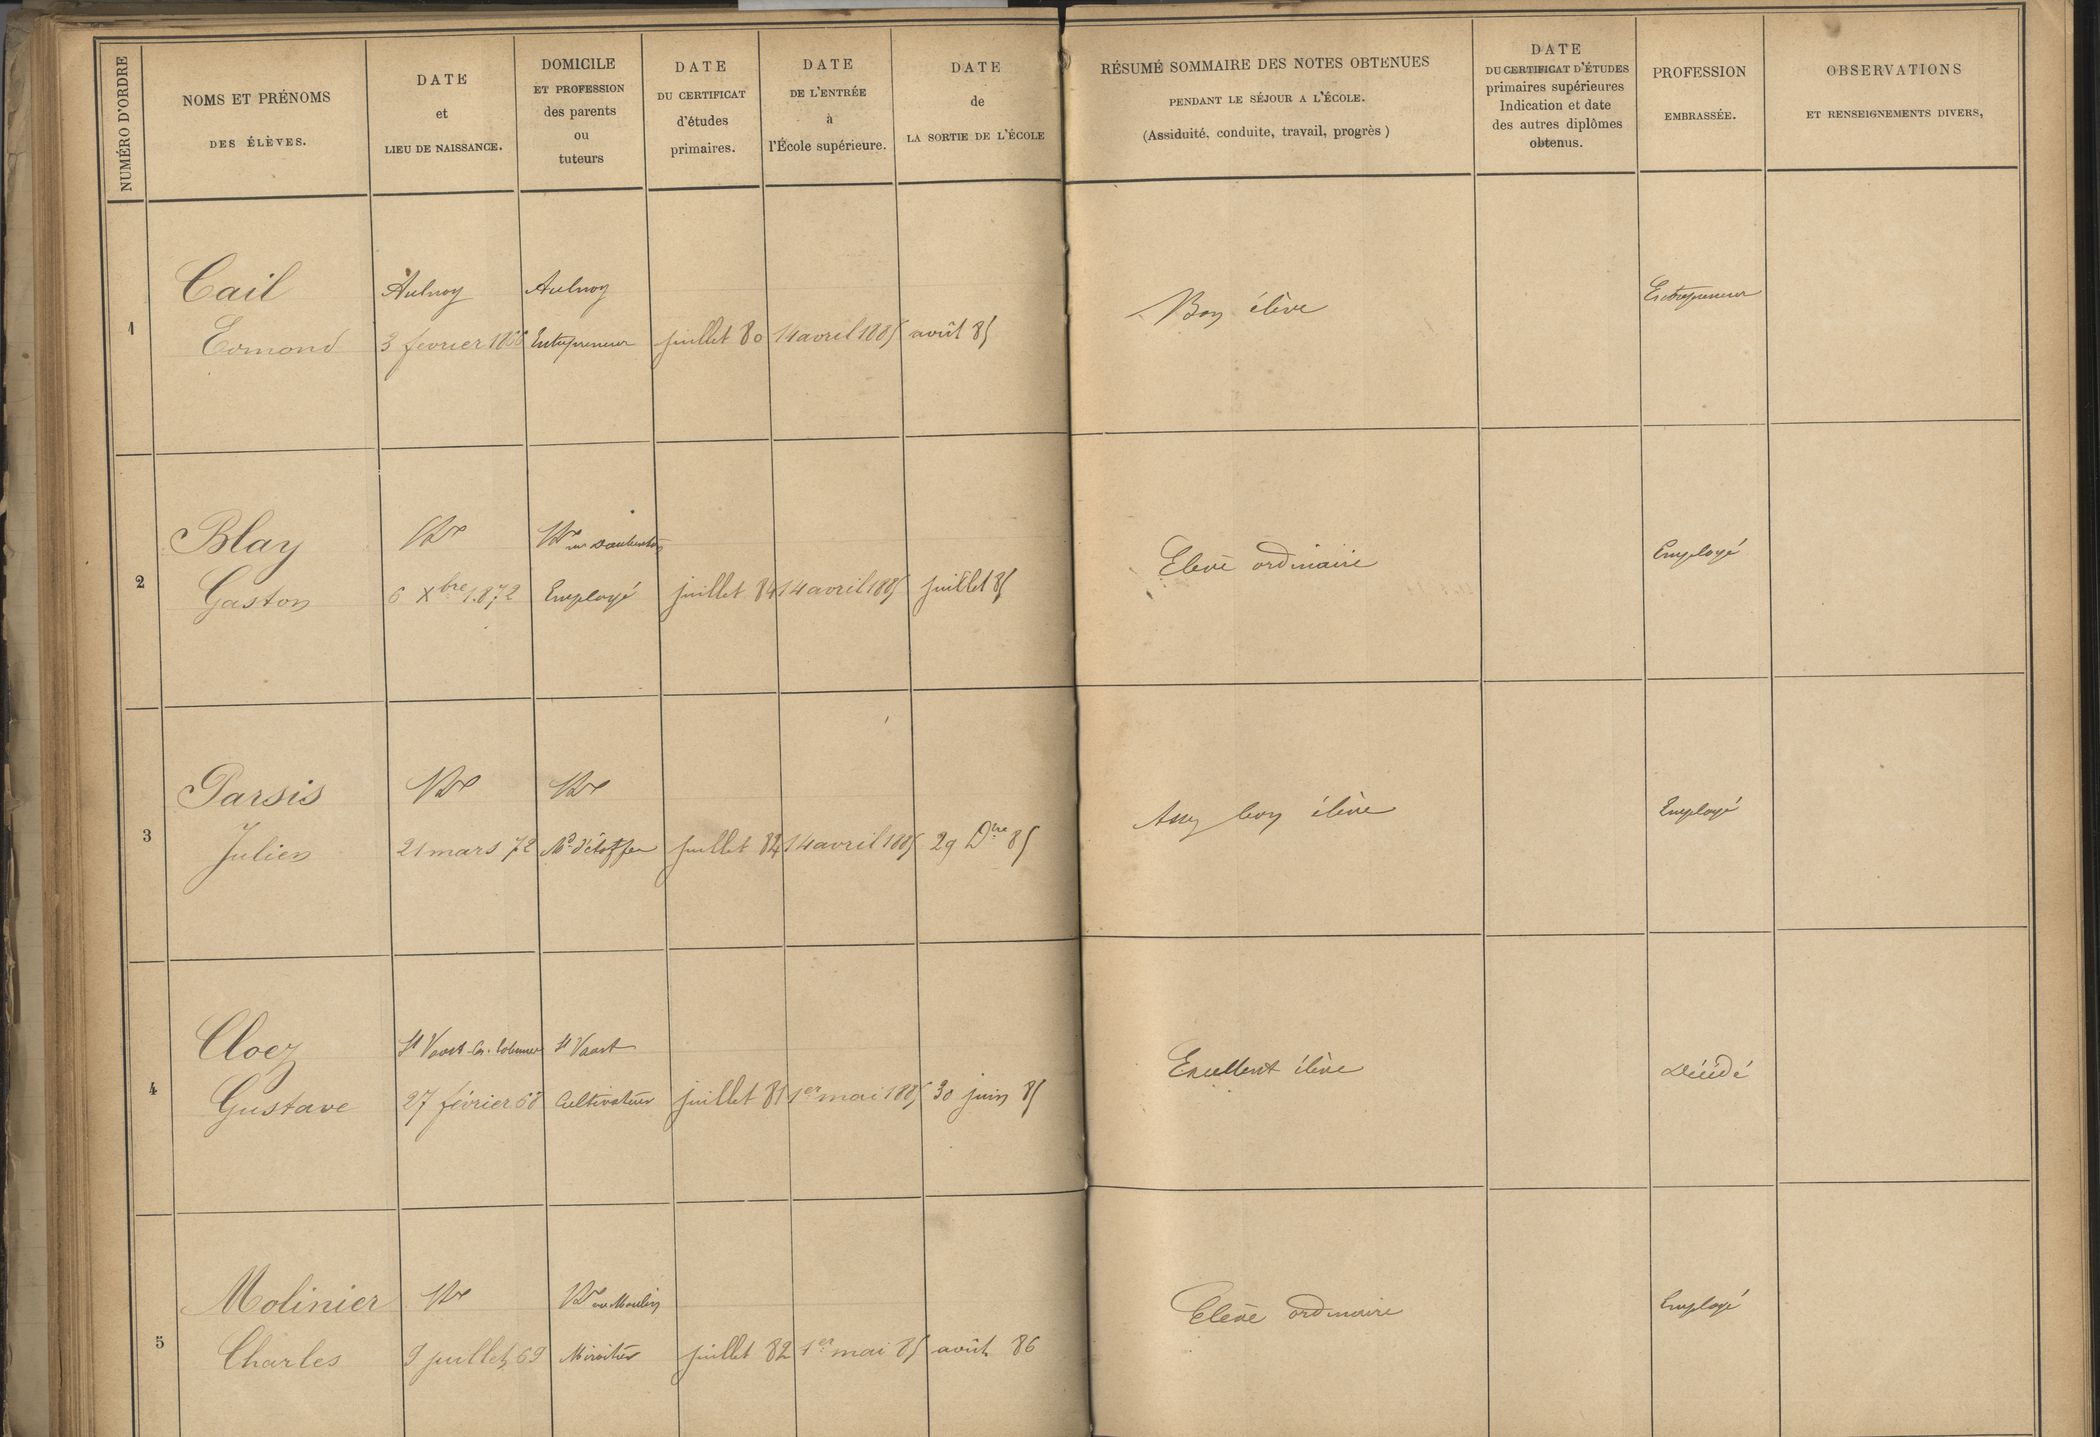 NUMÉRO D'ORDRE
NOMS ET PRÉNOMS
DES ÉLÈVES.
DATE
et
LIEU DE NAISSANCE.
DOMICILE
ET PROFESSION
des parents
ou
tuteurs
DATE
DU CERTIFICAT
d'études
primaires.
DATE
DE L'ENTRÉE
à
l'École supérieure.
DATE
de
LA SORTIE DE L'ÉCOLE
RÉSUMÉ SOMMAIRE DES NOTES OBTENUES
PENDANT LE SÉJOUR A L'ÉCOLE.
(Assiduité, conduite, travail, progrès)
DATE
DU CERTIFICAT D'ÉTUDES
primaires supérieures
Indication et date
des autres diplômes
obtenus.
PROFESSION
EMBRASSÉE.
OBSERVATIONS
ET RENSEIGNEMENTS DIVERS,
1
Cail
Edmond
Aulnoy
3 fevrier 1866
Aulnoy
Entrepreneur
juillet 80
14 avril 1885
août 85
Bon élève
Entrepreneur
2
Blay
Gaston
Vnes
6 Xbre 1872
Vnes rue
Employé
juillet 84
14 avril 1885
juillet 85
Elève ordinaire
Employé
3
Parsis
Julien
Vnes
21 mars 72
Vnes
Md d'étoffes
juillet 84
14 avril 1885
29 Dbre 85
Assez bon élève
Employé
4
Cloez
Gustave
St Vaast
27 février 68
St Vaast
Cultivateur
juillet 81
1er mai 1885
30 juin 85
Excellent élève
Décédé
5
Molinier
Charles
Vnes
9 juillet 69
Vnes rue Moulin
Miroitier
juillet 82
1er mai 85
août 86
Elève ordinaire
Employé